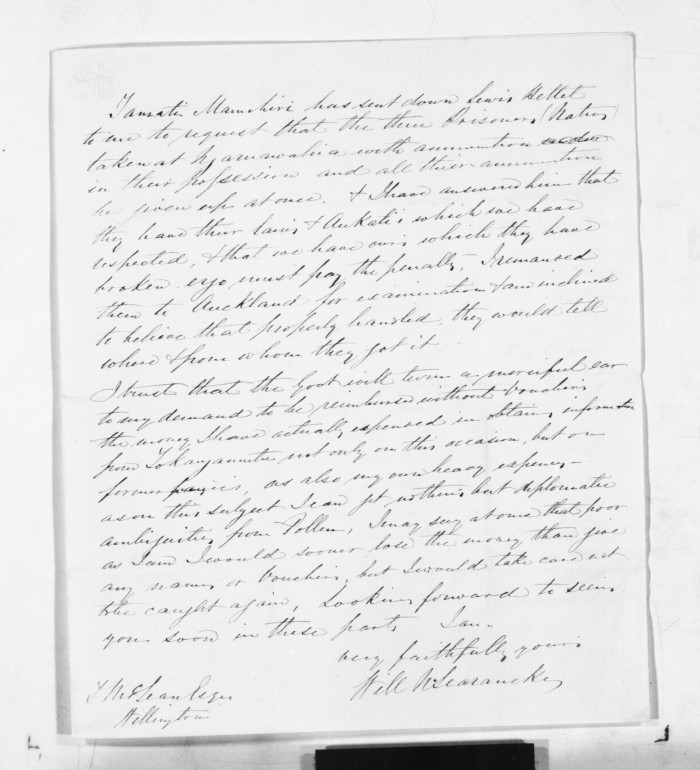 Tawhiao Manuhiri has sent down Lewis Hettet
to me to request that the three Prisoners (Natives)
taken at Ngaruawahia with ammunition
in their possession and all their ammunition
be given up at once. & I have answered him that
they have their laws & Aukati's which we have
respected, & that we have ours which they have
broken ergo must pay the penalty, I remanded
them to Auckland for examination & am inclined
to believe that properly handled, they would tell
where & from whom they got it —
I trust that the Govt will turn a merciful ear
to my demand to be reimbursed without Vouchers
the money I have actually expensed in obtaing information
from Tokangamutu not only on this occasion, but on
former , as also my own heavy expenses —
as on this subject I can get nothing but diplomatic
ambiguities from Pollen, I may say at once that poor
as I am I would sooner lose the money than give
any names or Vouchers, but I would take care not
to be caught again, Looking forward to seeing
you soon in these parts I am —
very faithfully yours
Will N Searancke
D McLean Esqre
Wellington